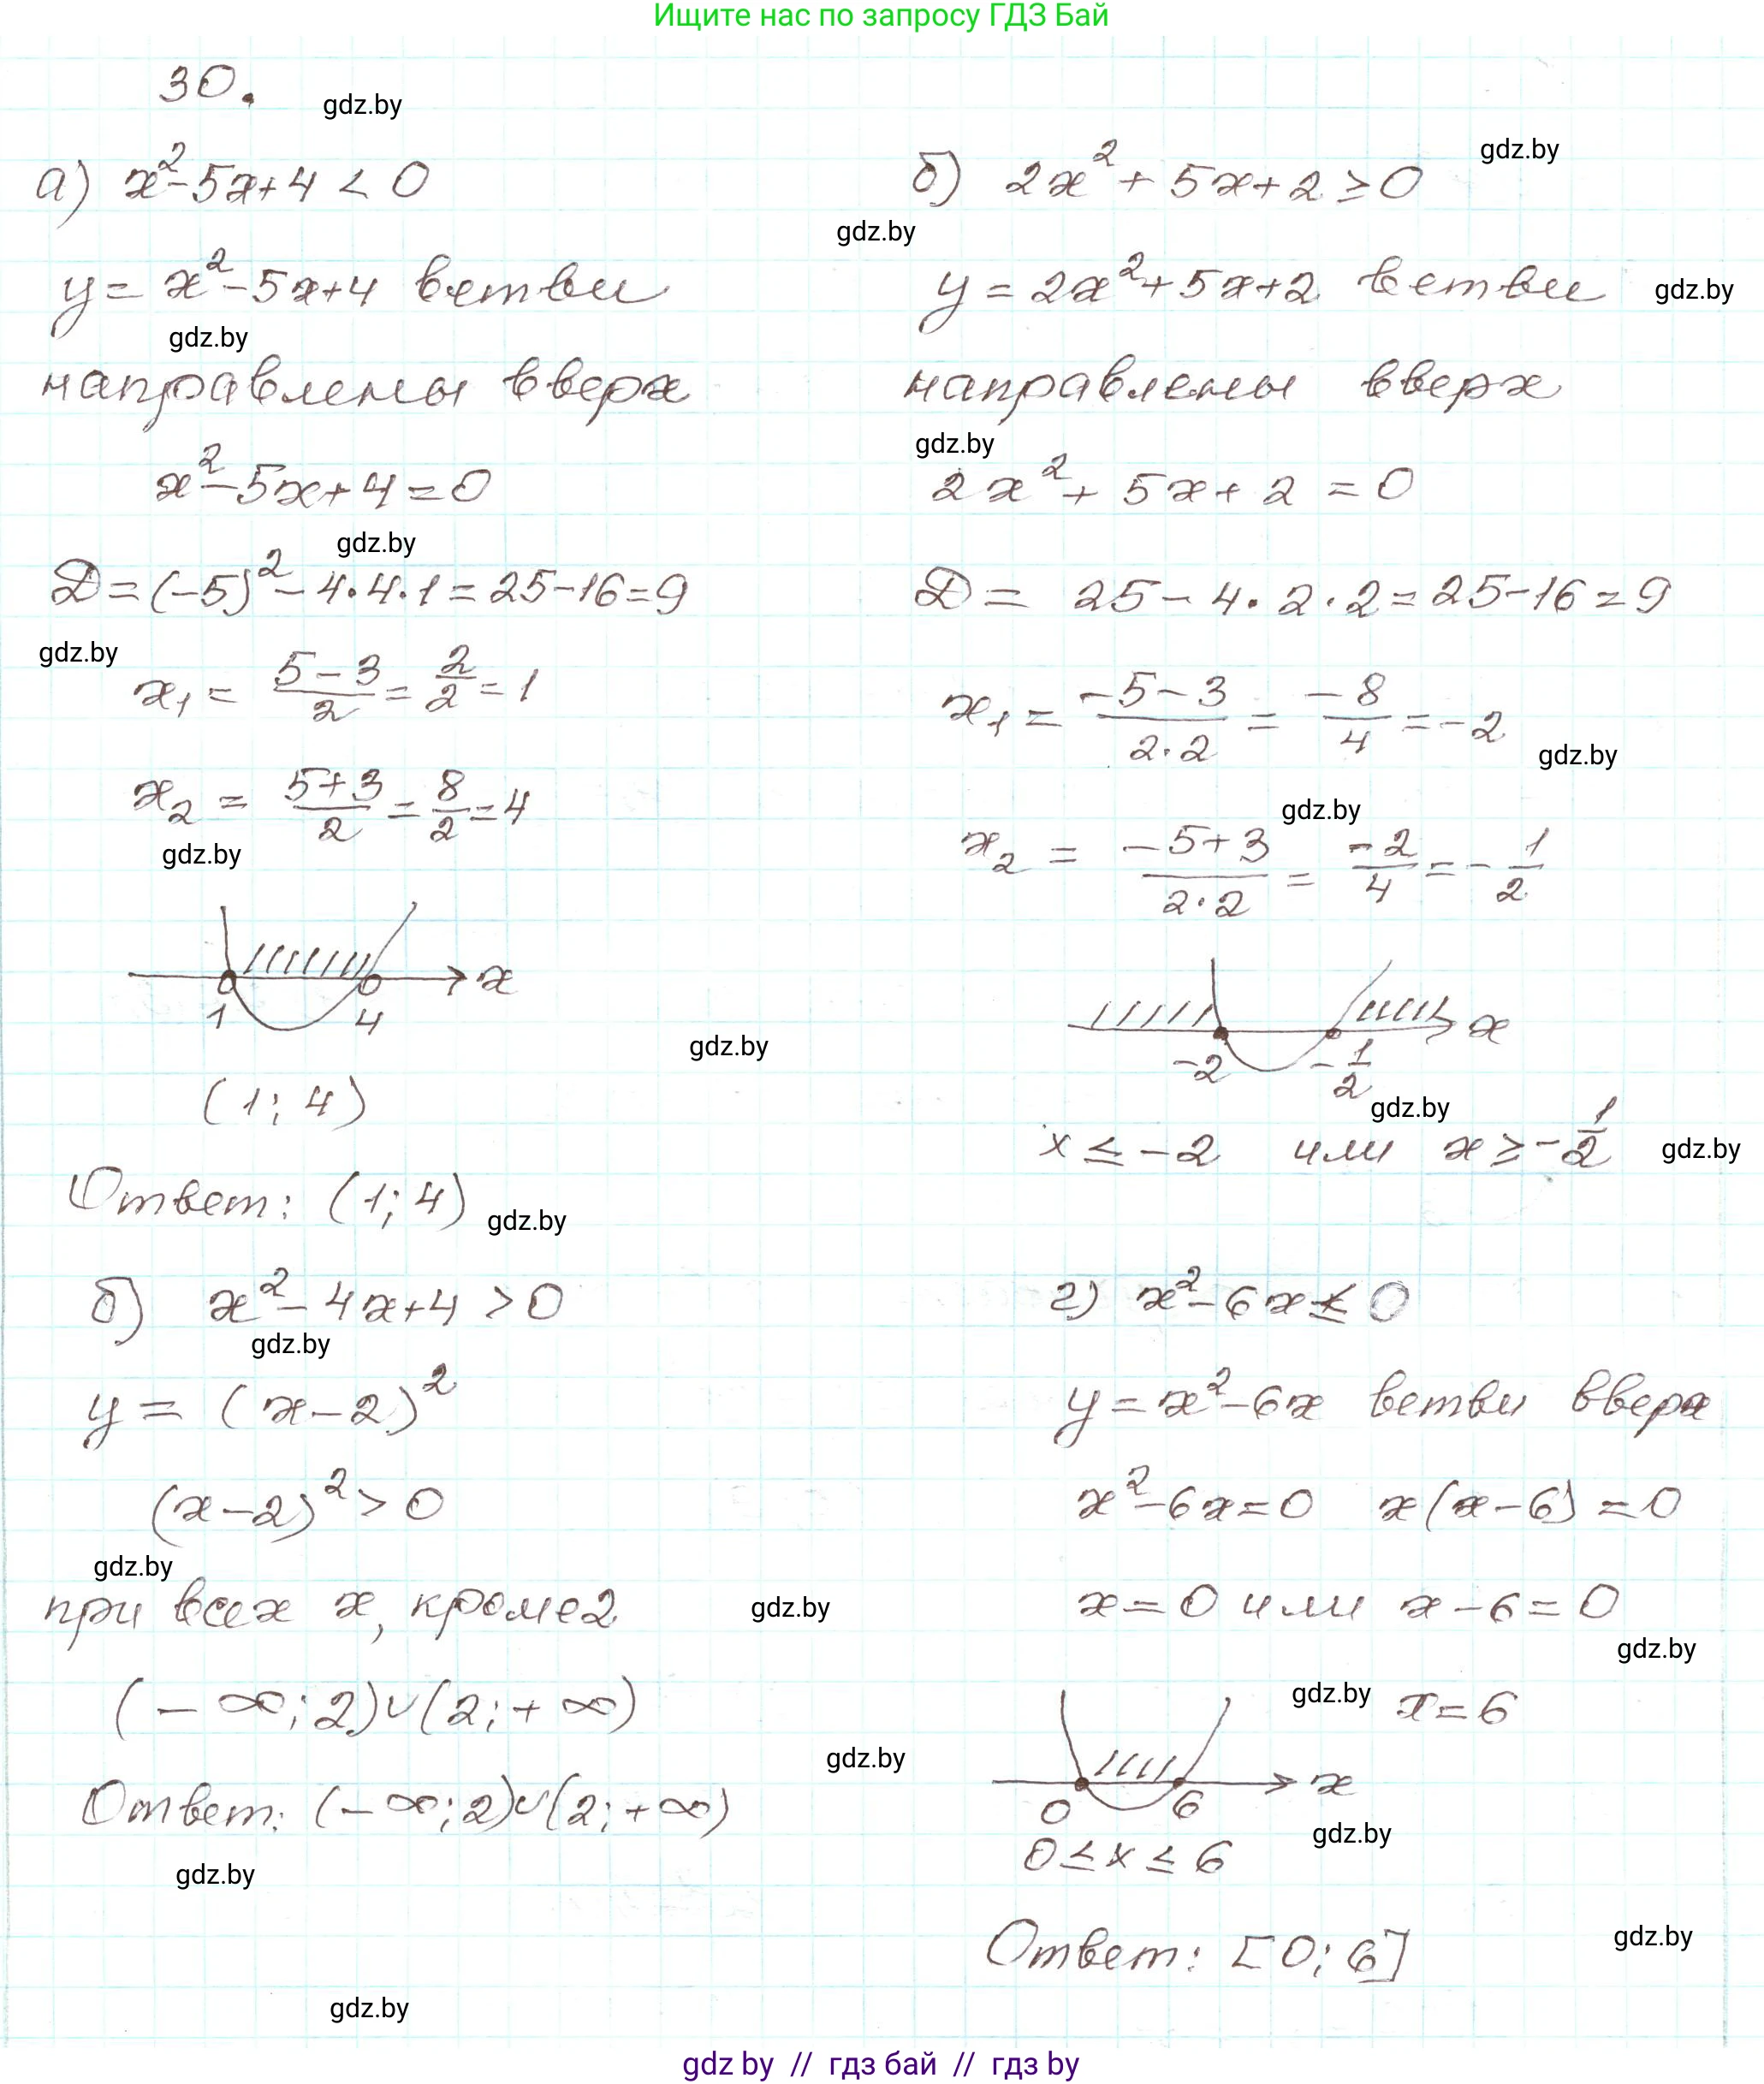 Ищите нас по запросу ГДЗ Бай
30.
gdz.by
а) x²-5x+4 < 0
y = x²-5x+4 ветви
gdz.by
направлены вверх
x²-5x+4=0
gdz.by
D=(-5)²-4·4·1=25-16=9
gdz.by
x₁ = (5-3)/2 = 2/2 = 1
x₂ = (5+3)/2 = 8/2 = 4
gdz.by
x
1 4
gdz.by
(1; 4)
Ответ: (1; 4)
gdz.by
б) x²-4x+4 > 0
gdz.by
y = (x-2)²
(x-2)² > 0
gdz.by
при всех x, кроме 2
gdz.by
(-∞; 2)∪(2; +∞)
gdz.by
Ответ: (-∞; 2)∪(2; +∞)
gdz.by
gdz.by
б) 2x²+5x+2 ≥ 0
gdz.by
gdz.by
y = 2x²+5x+2 ветви
gdz.by
направлены вверх
gdz.by
2x²+5x+2 = 0
D = 25-4·2·2=25-16=9
x₁ = (-5-3)/(2·2) = -8/4 = -2
gdz.by
gdz.by
x₂ = (-5+3)/(2·2) = -2/4 = -1/2
x
-2 -1/2
gdz.by
x ≤ -2 или x ≥ -1/2
gdz.by
г) x²-6x ≤ 0
y = x²-6x ветви вверх
x²-6x=0 x(x-6)=0
x=0 или x-6=0
gdz.by
gdz.by
x=6
x
0 6
gdz.by
0≤x≤6
Ответ: [0; 6]
gdz.by
gdz by // гдз бай // гдз by